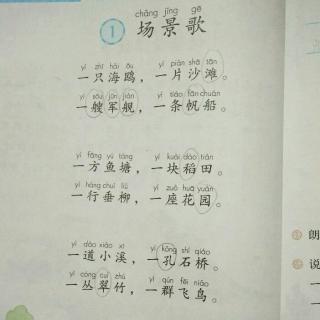 chǎng jǐng gē
1 场景歌
yì zhī hǎi ōu yí piàn shā tān
一只海鸥，一片沙滩。
yì sōu jūn jiàn yì tiáo fān chuán
一艘军舰，一条帆船。
yì fāng yú táng yí kuài dào tián
一方鱼塘，一块稻田。
yì háng chuí liǔ yí zuò huā yuán
一行垂柳，一座花园。
yí dào xiǎo xī yì kǒng shí qiáo
一道小溪，一孔石桥。
yì cóng cuì zhú yì qún fēi niǎo
一丛翠竹，一群飞鸟。
朗
说